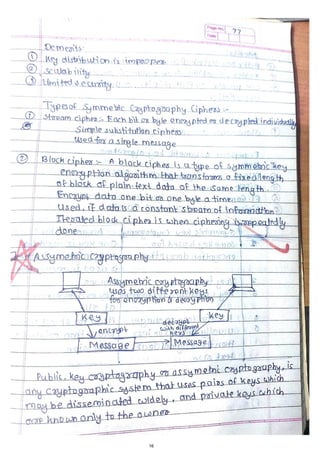 Page No. 77
Date
Demerits
① Key distribution is improper
② Scalability
③ Limited security.
Types of Symmetric Cryptography Ciphers :-
① Stream cipher :- Each bit or byte encrypted or decrypted individually
Simple substitution ciphers.
used for a single message
② Block cipher :- A block cipher is a type of symmetric key
encryption algorithm that transforms a fixed length
of block of plain text data of the same length.
Encrypt data one bit or one byte a time
used. if data is a constant stream of information
Iterated block cipher is when ciphering is repeatedly
done
Asymetric cryptography
Assymetric cryptography
uses two different keys
for encryption & decryption
Key
key
encrypt
decrypt
with different
keys
Message
Message
Public, key cryptography or assymetric cryptography, is
any cryptographic system that uses pairs of keys which
may be disseminated widely, and private keys which
are known only to the owner